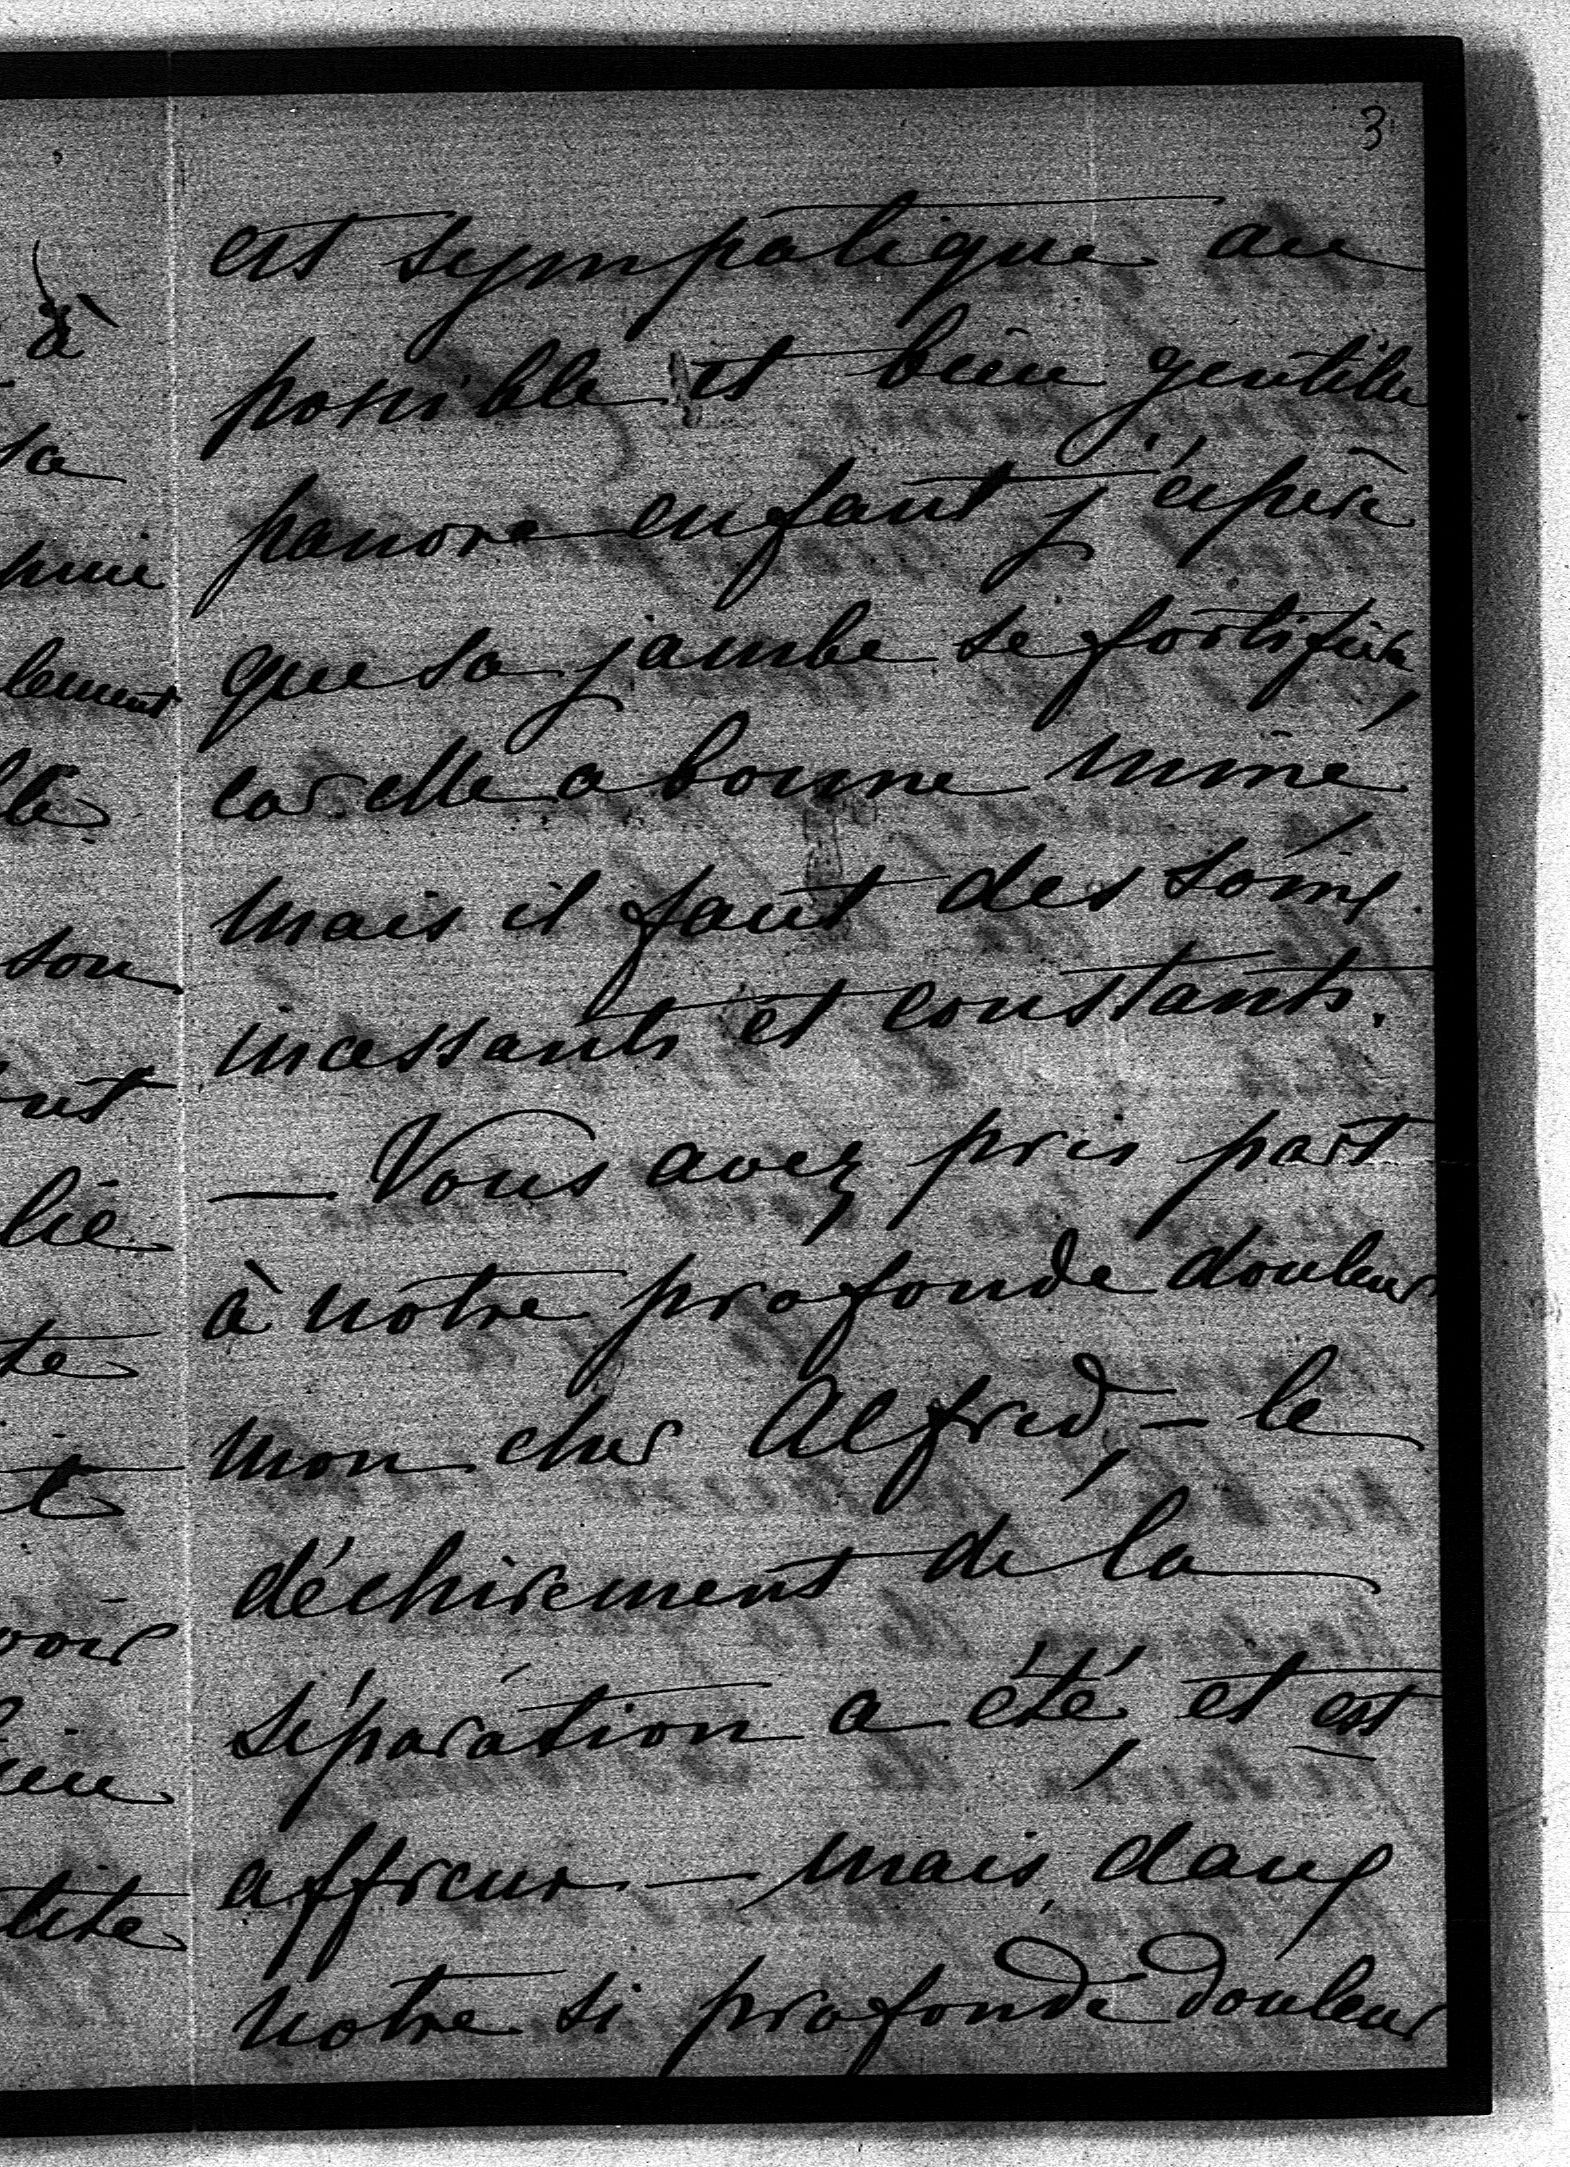 3
est sympatique au
possible et bien gentille
pauvre enfant j'éspère
que sa jambe se fortifiera
car elle a bonne mine,
mais il faut des soins,
incessants et constants.
— Vous avez pris part
à notre profonde douleur,
mon cher Alfred, — le
déchirement de la
séparation a été, et est
affreux — mais, dans
notre si profonde douleur
à
sa
son
lie
te
voir